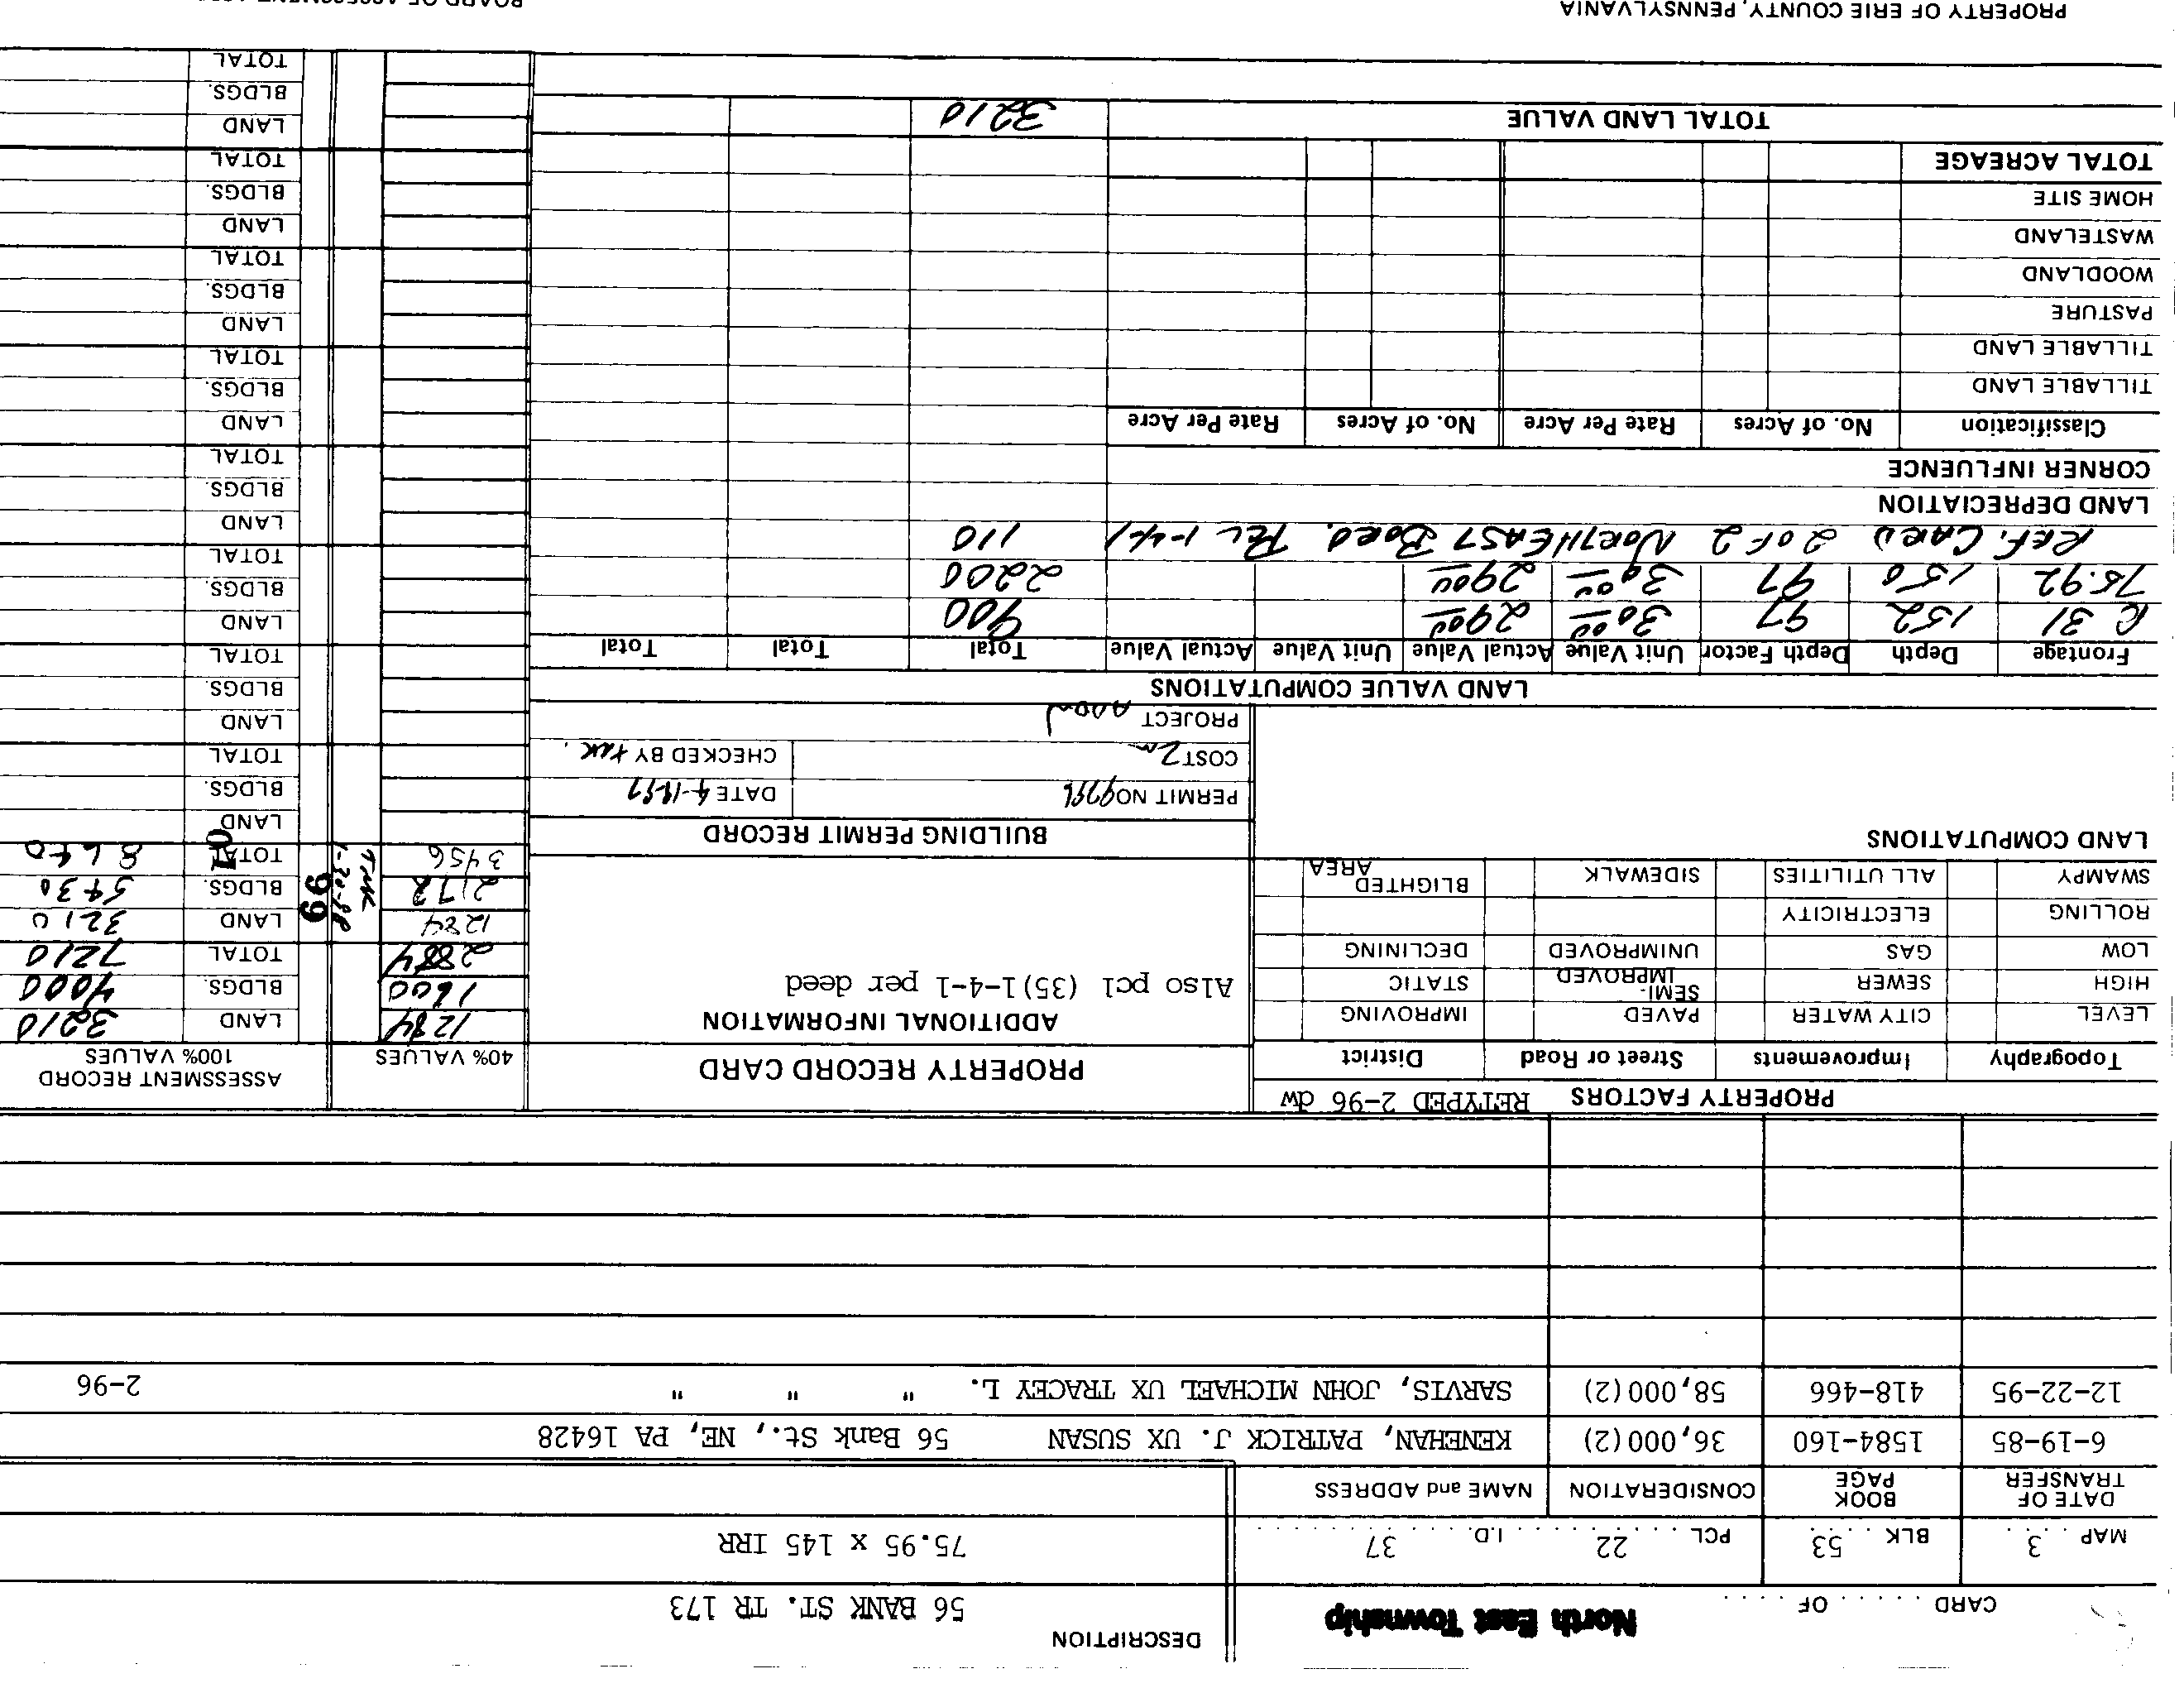 North East Township
DESCRIPTION
CARD ...... OF ......
56 BANK ST. TR 173
MAP 3 BLK 53 PCL 22 I.D. 37
75.95 x 145 IRR
DATE OF TRANSFER BOOK PAGE CONSIDERATION NAME and ADDRESS
6-19-85 1584-160 36,000(2) KENEHAN, PATRICK J. UX SUSAN 56 Bank St., NE, PA 16428
12-22-95 418-466 58,000(2) SARVIS, JOHN MICHAEL UX TRACEY L. " " " 2-96
PROPERTY FACTORS RETYPED 2-96 dw
Topography Improvements Street or Road District
LEVEL CITY WATER PAVED IMPROVING
HIGH SEWER SEMI-IMPROVED STATIC
LOW GAS UNIMPROVED DECLINING
ROLLING ELECTRICITY
SWAMPY ALL UTILITIES SIDEWALK BLIGHTED AREA
LAND COMPUTATIONS
PROPERTY RECORD CARD
ADDITIONAL INFORMATION
Also pcl (35)1-4-1 per deed
BUILDING PERMIT RECORD
PERMIT NO DATE 4-19-97
COST 2m CHECKED BY
PROJECT
40% VALUES
ASSESSMENT RECORD
100% VALUES
1284 LAND 3210
1600 BLDGS. 4000
2884 TOTAL 7210
1284 99 LAND 3210
2172 BLDGS. 5430
3456 1-30-98 TOTAL 8640
01
LAND
BLDGS.
TOTAL
LAND
BLDGS.
TOTAL
LAND
BLDGS.
TOTAL
LAND
BLDGS.
TOTAL
LAND
BLDGS.
TOTAL
LAND
BLDGS.
TOTAL
LAND
BLDGS.
TOTAL
LAND
BLDGS.
TOTAL
LAND VALUE COMPUTATIONS
Frontage Depth Depth Factor Unit Value Actual Value Unit Value Actual Value Total Total Total
R 31 152 97 30 00 29 00 900
75.92 150 97 30 00 29 00 2200
REF. CARD 2 OF 2 NORTHEAST BORO. PCL 1-4-1 110
LAND DEPRECIATION
CORNER INFLUENCE
Classification No. of Acres Rate Per Acre No. of Acres Rate Per Acre
TILLABLE LAND
TILLABLE LAND
PASTURE
WOODLAND
WASTELAND
HOME SITE
TOTAL ACREAGE
TOTAL LAND VALUE 3210
PROPERTY OF ERIE COUNTY, PENNSYLVANIA